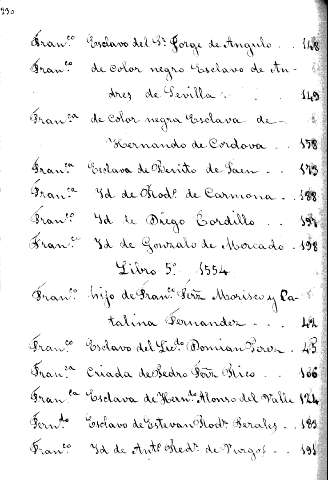 Fran.co Esclavo del S.r Jorge de Angulo . . 148
Fran.co de color negro Esclavo de An-
dres de Sevilla . . 149
Fran.ca de color negra Esclava de
Hernando de Cordova . . 158
Fran.ca Esclava de Benito de Jaen . . 175
Fran.ca Id de Rod.o de Carmona . . 188
Fran.co Id de Diego Gordillo . .
Fran.co Id de Gonzalo de Mercado . 198
Libro 5.o 1554
Fran.co hijo de Fran.co Ferz Morisco y Ca-
talina Fernandez . . . 42
Fran.co Esclavo del Lic.do Domian Perez . 45
Fran.ca Criada de Pedro Rico . . 106
Fran.ca Esclava de Hern.do Alonso del Valle 124
Fern.do Esclavo de Estevan Rod.z Perales . 189
Fran.co Id de Ant.o Rod.z de Burgos . . 191